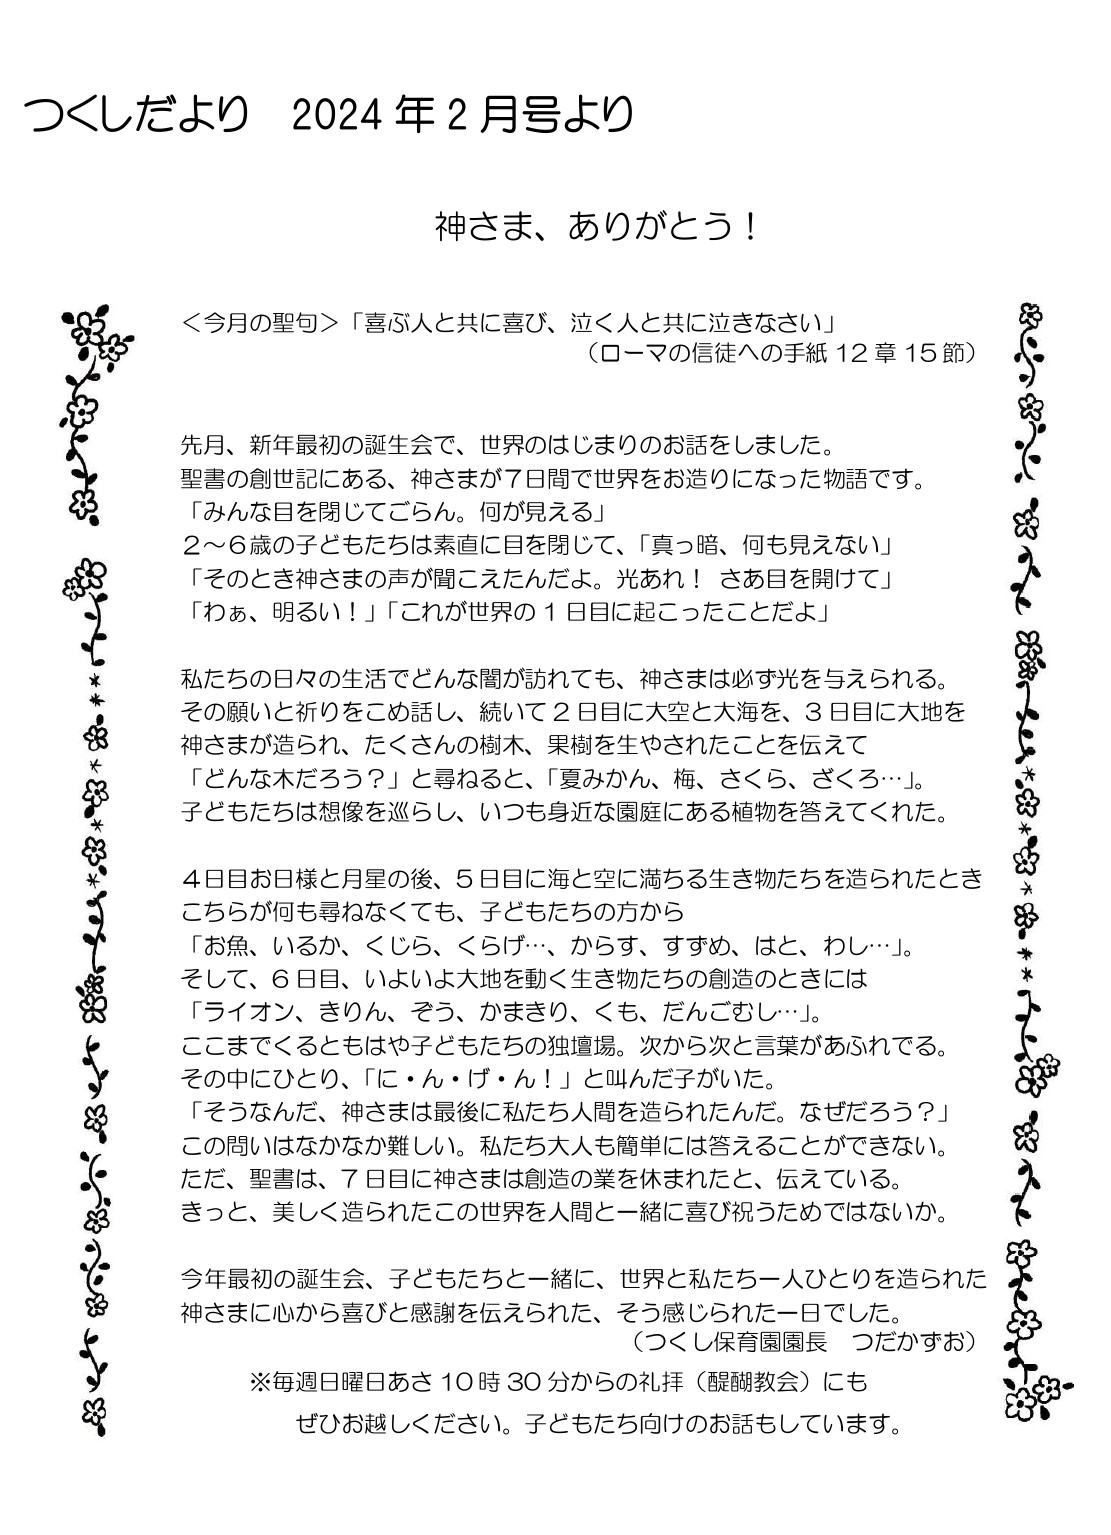 つくしだより　2024 年 2 月号より
神さま、ありがとう！
＜今月の聖句＞「喜ぶ人と共に喜び、泣く人と共に泣きなさい」
（ローマの信徒への手紙 12 章 15 節）
先月、新年最初の誕生会で、世界のはじまりのお話をしました。
聖書の創世記にある、神さまが７日間で世界をお造りになった物語です。
「みんな目を閉じてごらん。何が見える」
２～６歳の子どもたちは素直に目を閉じて、「真っ暗、何も見えない」
「そのとき神さまの声が聞こえたんだよ。光あれ！ さあ目を開けて」
「わぁ、明るい！」「これが世界の 1 日目に起こったことだよ」
私たちの日々の生活でどんな闇が訪れても、神さまは必ず光を与えられる。
その願いと祈りをこめ話し、続いて 2 日目に大空と大海を、3 日目に大地を
神さまが造られ、たくさんの樹木、果樹を生やされたことを伝えて
「どんな木だろう？」と尋ねると、「夏みかん、梅、さくら、ざくろ…」。
子どもたちは想像を巡らし、いつも身近な園庭にある植物を答えてくれた。
４日目お日様と月星の後、5 日目に海と空に満ちる生き物たちを造られたとき
こちらが何も尋ねなくても、子どもたちの方から
「お魚、いるか、くじら、くらげ…、からす、すずめ、はと、わし…」。
そして、6 日目、いよいよ大地を動く生き物たちの創造のときには
「ライオン、きりん、ぞう、かまきり、くも、だんごむし…」。
ここまでくるともはや子どもたちの独壇場。次から次と言葉があふれでる。
その中にひとり、「に・ん・げ・ん！」と叫んだ子がいた。
「そうなんだ、神さまは最後に私たち人間を造られたんだ。なぜだろう？」
この問いはなかなか難しい。私たち大人も簡単には答えることができない。
ただ、聖書は、7 日目に神さまは創造の業を休まれたと、伝えている。
きっと、美しく造られたこの世界を人間と一緒に喜び祝うためではないか。
今年最初の誕生会、子どもたちと一緒に、世界と私たち一人ひとりを造られた
神さまに心から喜びと感謝を伝えられた、そう感じられた一日でした。
（つくし保育園園長　つだかずお）
※毎週日曜日あさ 10 時 30 分からの礼拝（醍醐教会）にも
ぜひお越しください。子どもたち向けのお話もしています。